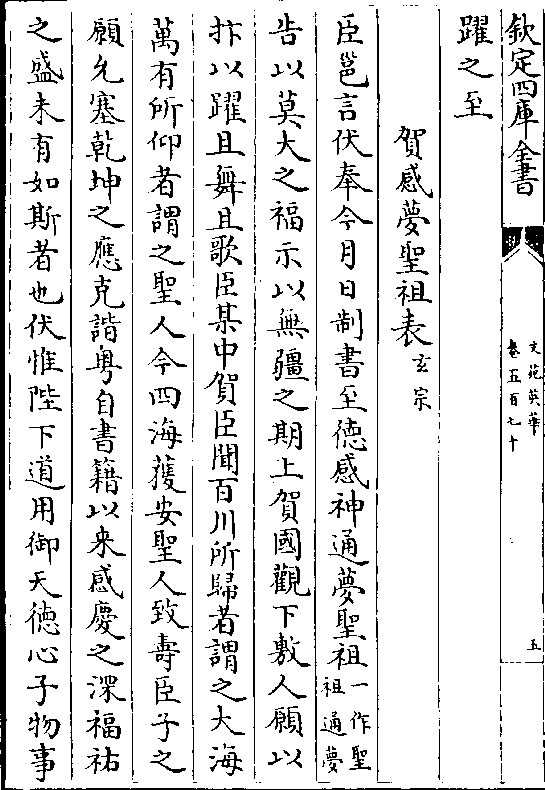 欽定四庫全書
文苑英華
卷五百七十
五
躍之至
賀感夢聖祖表玄宗
臣邕言伏奉今月日制書至德感神通夢聖祖一作聖祖通夢
告以莫大之福示以無疆之期上賀國觀下敷人願以
抃以躍且舞且歌臣某中賀臣聞百川所歸者謂之大海
萬有所仰者謂之聖人今四海獲安聖人致壽臣子之
願允塞乾坤之應克諧粤自書籍以来感慶之深福祐
之盛未有如斯者也伏惟陛下道用御天徳心子物事